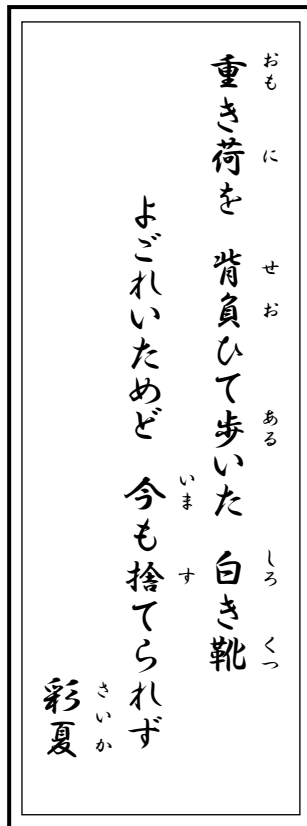 重き荷を 背負ひて歩いた 白き靴
おも に せお ある しろ くつ
よごれいためど 今も捨てられず
いま す
彩夏
さいか